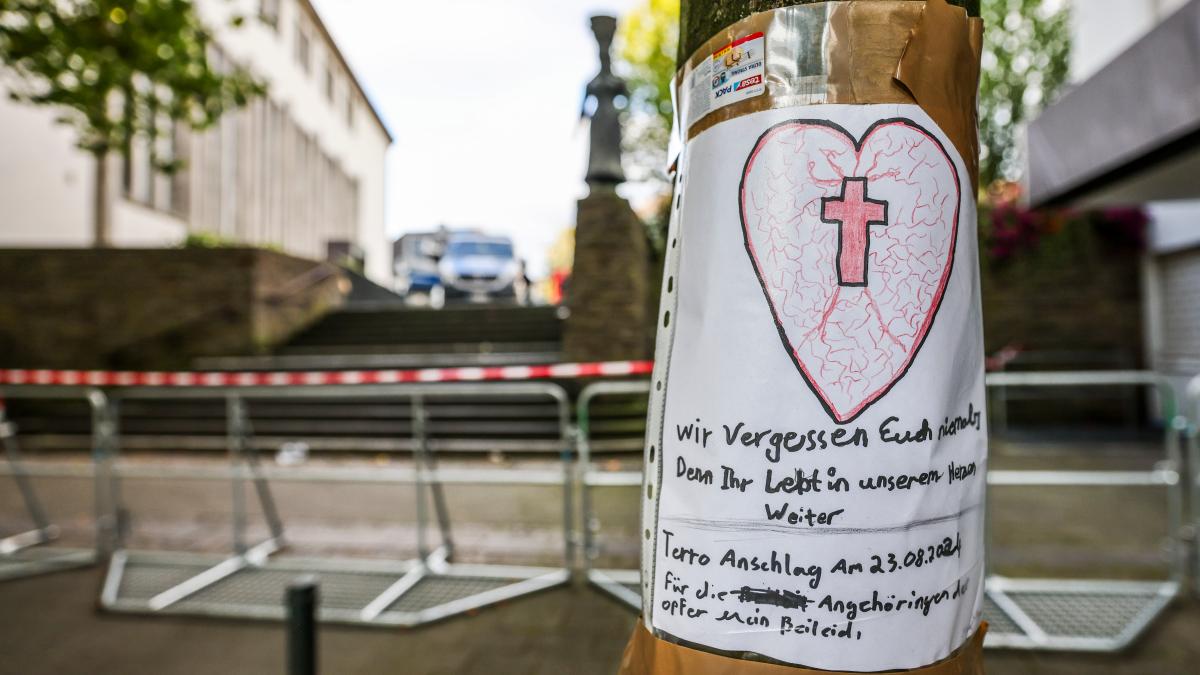 tesa PACK
ULTRA STRONG
Wir Vergessen Euch niemals
Denn Ihr Lebt in unserem Herzen
Weiter
Terro Anschlag Am 23.08.2024
Für die Angehöringen der
opfer Mein Beileid,